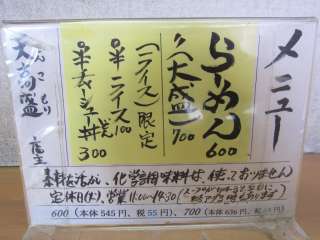 メニュー
らーめん 600
〃(大盛) 700
(ライス)限定
半ライス 100
半チャーシュー丼 300
天高盛
てんこもり
店主
化学調味料は使っておりません
定休日(火)、営業11:00〜14:30
600(本体545円、税55円)、700(本体636円、税64円)